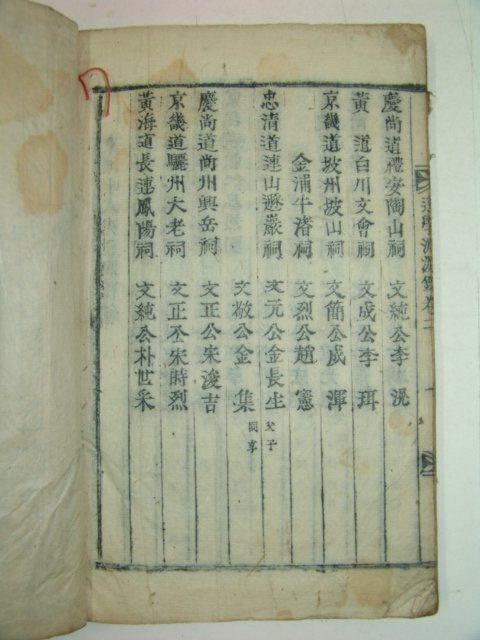 慶尙道禮安陶山祠 文純公李滉
黃 道白川文會祠 文成公李珥
京畿道坡州坡山祠 文簡公成渾
金浦牛渚祠 文烈公趙憲
忠清道連山遯巖祠 文元公金長生 父子
文敬公金集 同享
慶尙道尙州興岳祠 文正公宋浚吉
京畿道驪州大老祠 文正公宋時烈
黃海道長連鳳陽祠 文純公朴世采